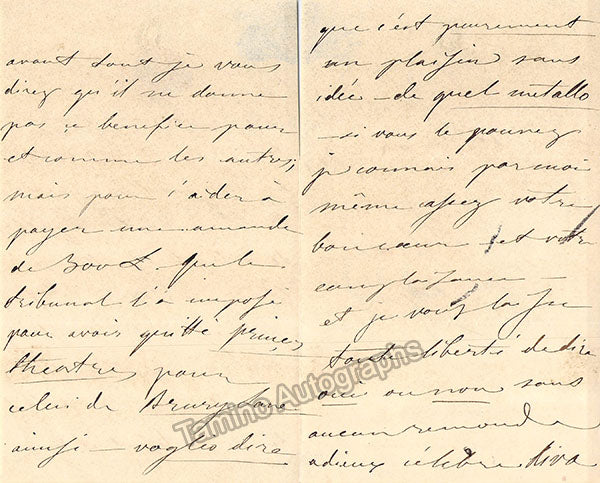 avant tout je vous
direz qu'il ne donne
pas ce benefice pour
et comme les autres;
mais pour l'aider à
payer une amande
de 300 £ que le
tribunal l'a imposé
pour avois quitté princes
theatres pour
celui de Drury Lane
ainsi — voglio dire
que c'est purement
un plaisir sans
idée — de quel metallo
— si vous le pouvez
je connais par moi
même assez votre
bon cœur et votre
complaisance —
et je vous laisse
toute liberté de dire
oui ou non sans
aucun remords
adieu célèbre diva
Tamino Autographs